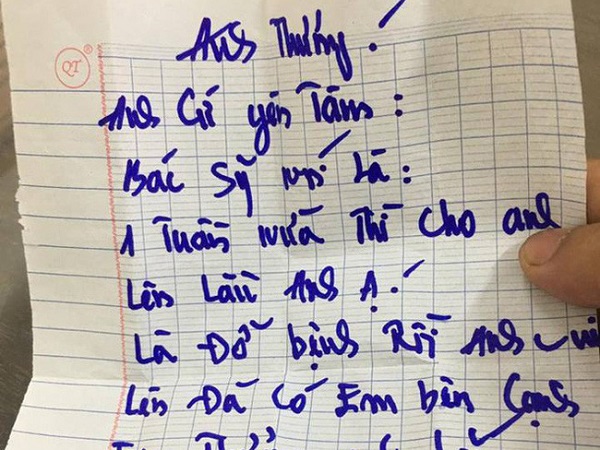 QT ®
Anh Thướng!
Anh Cứ yên Tâm:
Bác Sỹ nói Là:
1 Tuần nữa Thì cho anh
Lên Lầu Anh Ạ!
Là Đỡ bịnh Rồi Anh vui
Lên Đã có Em bên Cạnh